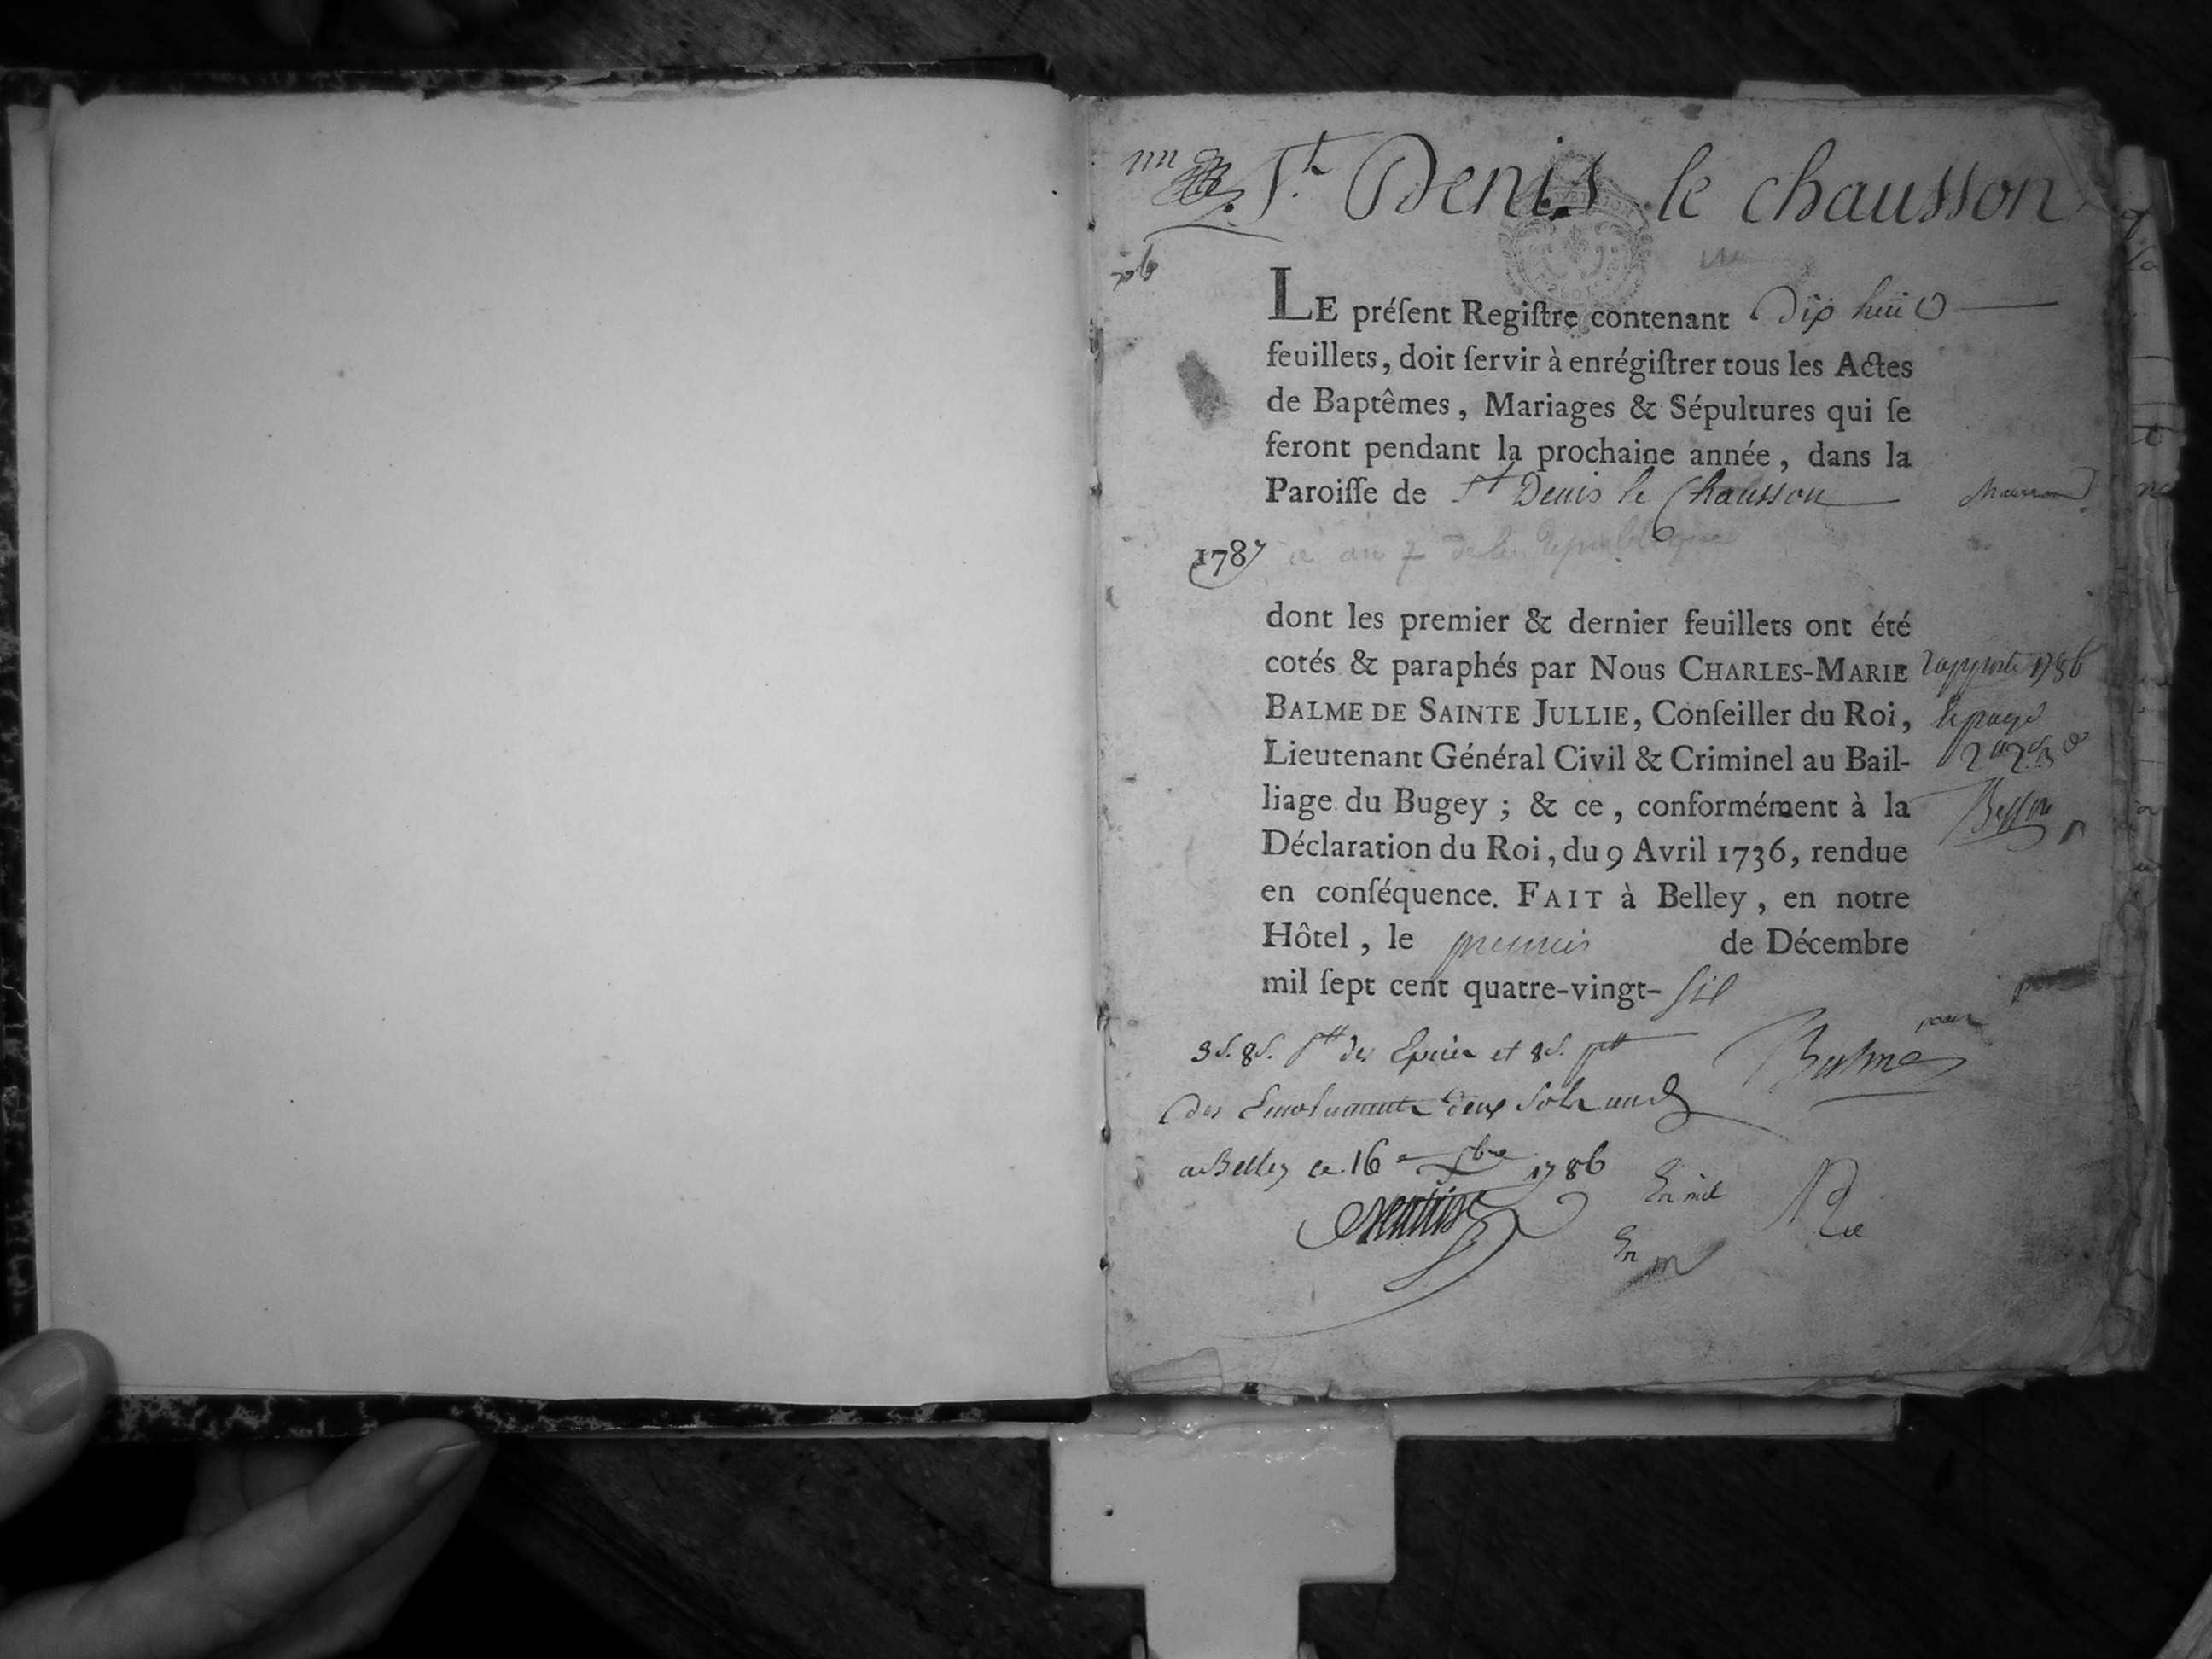 St Denis le chausson
LE préſent Regiſtre contenant Dix huit
feuillets, doit ſervir à enrégiſtrer tous les Actes
de Baptêmes, Mariages & Sépultures qui ſe
feront pendant la prochaine année, dans la
Paroiſſe de St Denis le Chausson
1787 an 7 de la Republique
dont les premier & dernier feuillets ont été
cotés & paraphés par Nous CHARLES-MARIE
BALME DE SAINTE JULLIE, Conſeiller du Roi,
Lieutenant Général Civil & Criminel au Bail-
liage du Bugey ; & ce, conformément à la
Déclaration du Roi, du 9 Avril 1736, rendue
en conſéquence. FAIT à Belley, en notre
Hôtel, le premier de Décembre
mil ſept cent quatre-vingt-six
3s. 8d. des Epices et 8d.
Balme
des Emoluments deux sols
a Belley ce 16 1786
En mil
En m